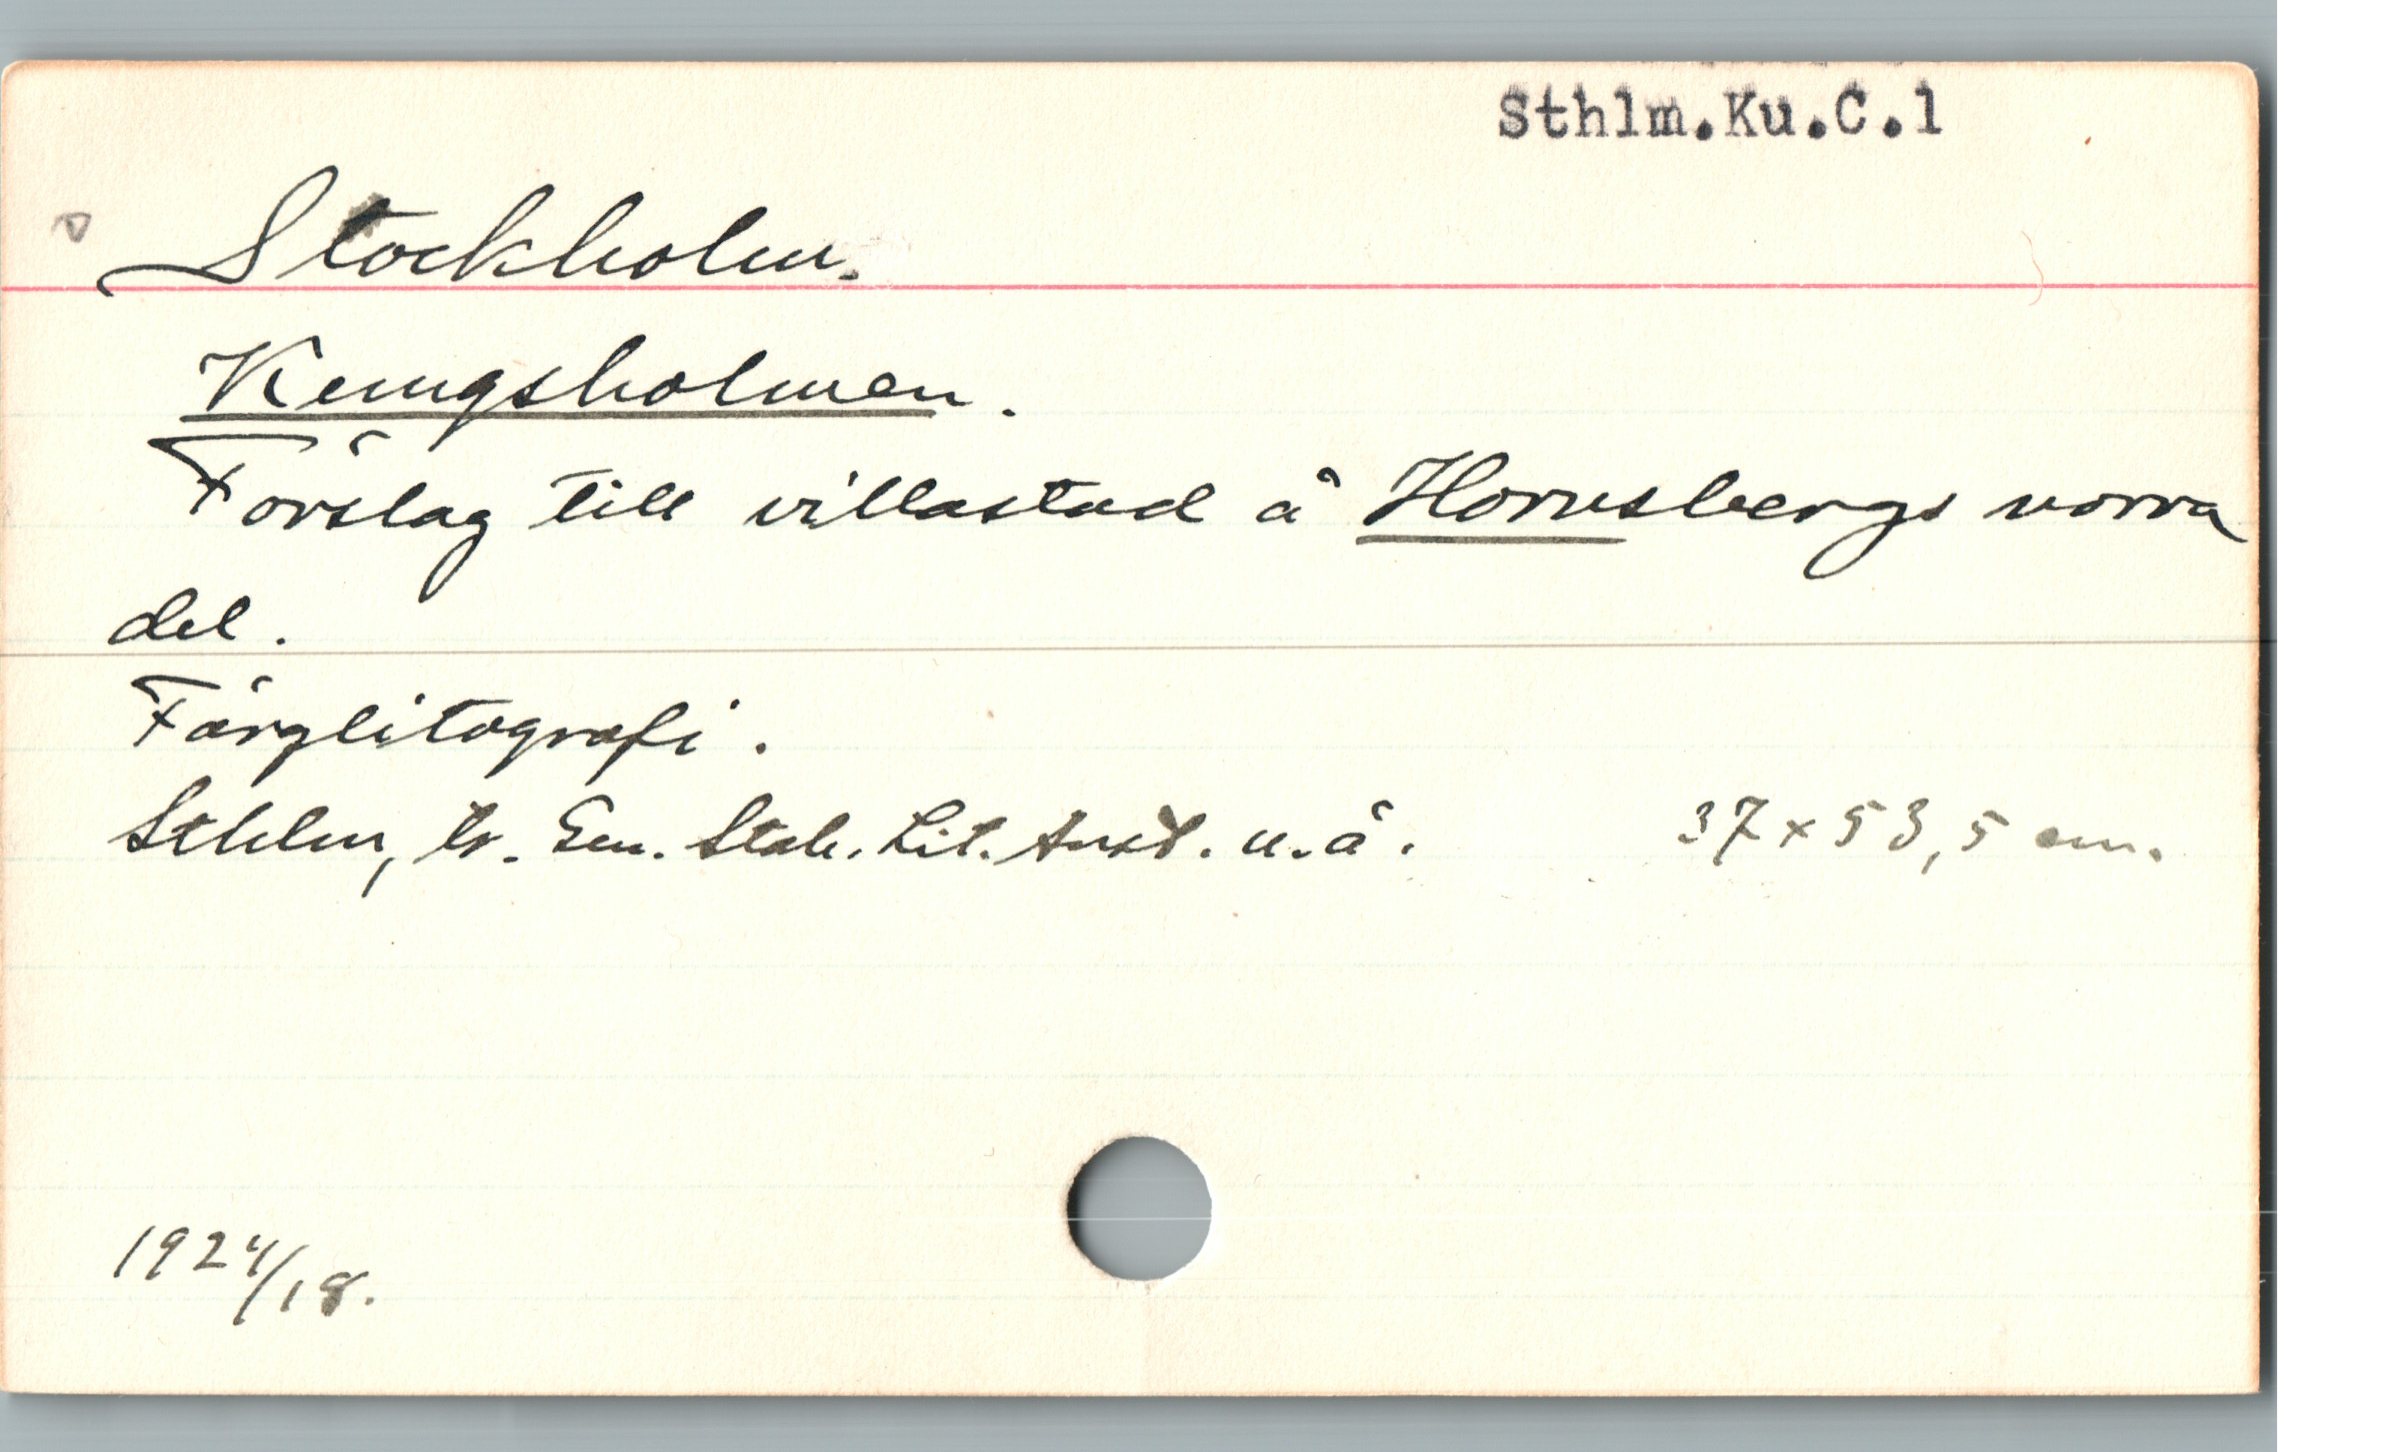 Sthlm.Ku.C.1
Stockholm.
Kungsholmen.
Förslag till villastad å Hornsbergs norra
del.
Färglitografi.
Sthlm, tr. Gen. Stab. Lit. Anst. u.å. 37 x 53,5 cm.
1924/18.